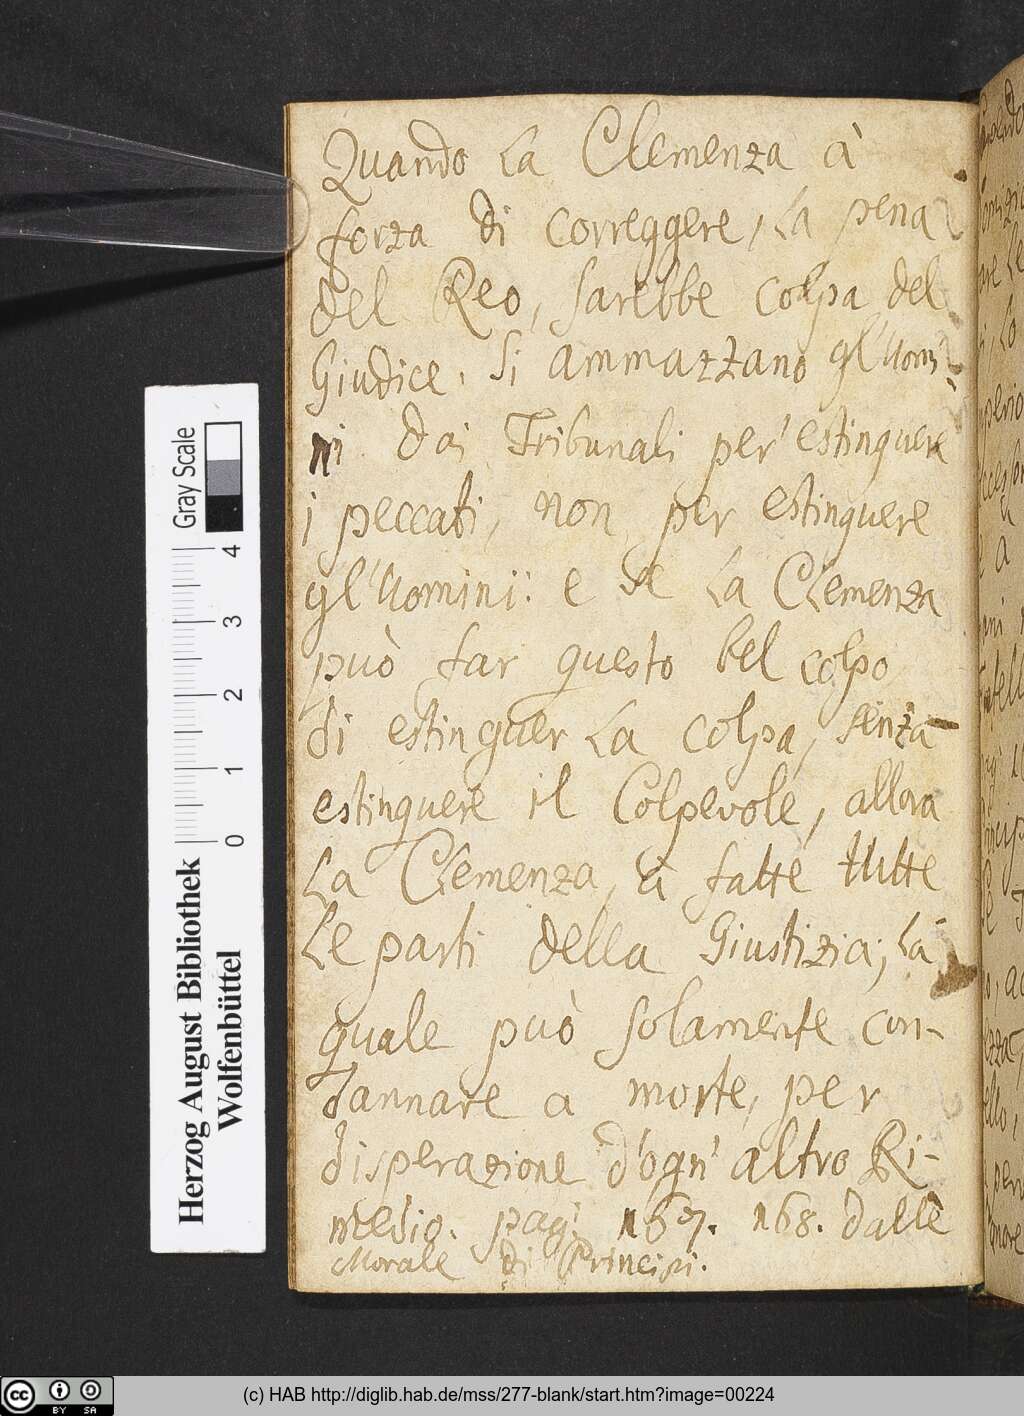 Quando la Clemenza à
forza di correggere, la pena
del Reo, sarebbe colpa del
Giudice. Si ammazzano gl'Uomi-
ni dai Tribunali per estinguere
i peccati, non per estinguere
gl'Uomini: e se la Clemenza
può far questo bel colpo
di estinguer la colpa, senza
estinguere il Colpevole, allora
la Clemenza, à fatte tutte
le parti della Giustizia; la
quale può solamente con-
dannare a morte, per
disperazione d'ogn' altro Ri-
medio. pag: 167. 168. dalle
Morale di Principi.
Gray Scale
0 1 2 3 4
Herzog August Bibliothek
Wolfenbüttel
cc BY SA
(c) HAB http://diglib.hab.de/mss/277-blank/start.htm?image=00224